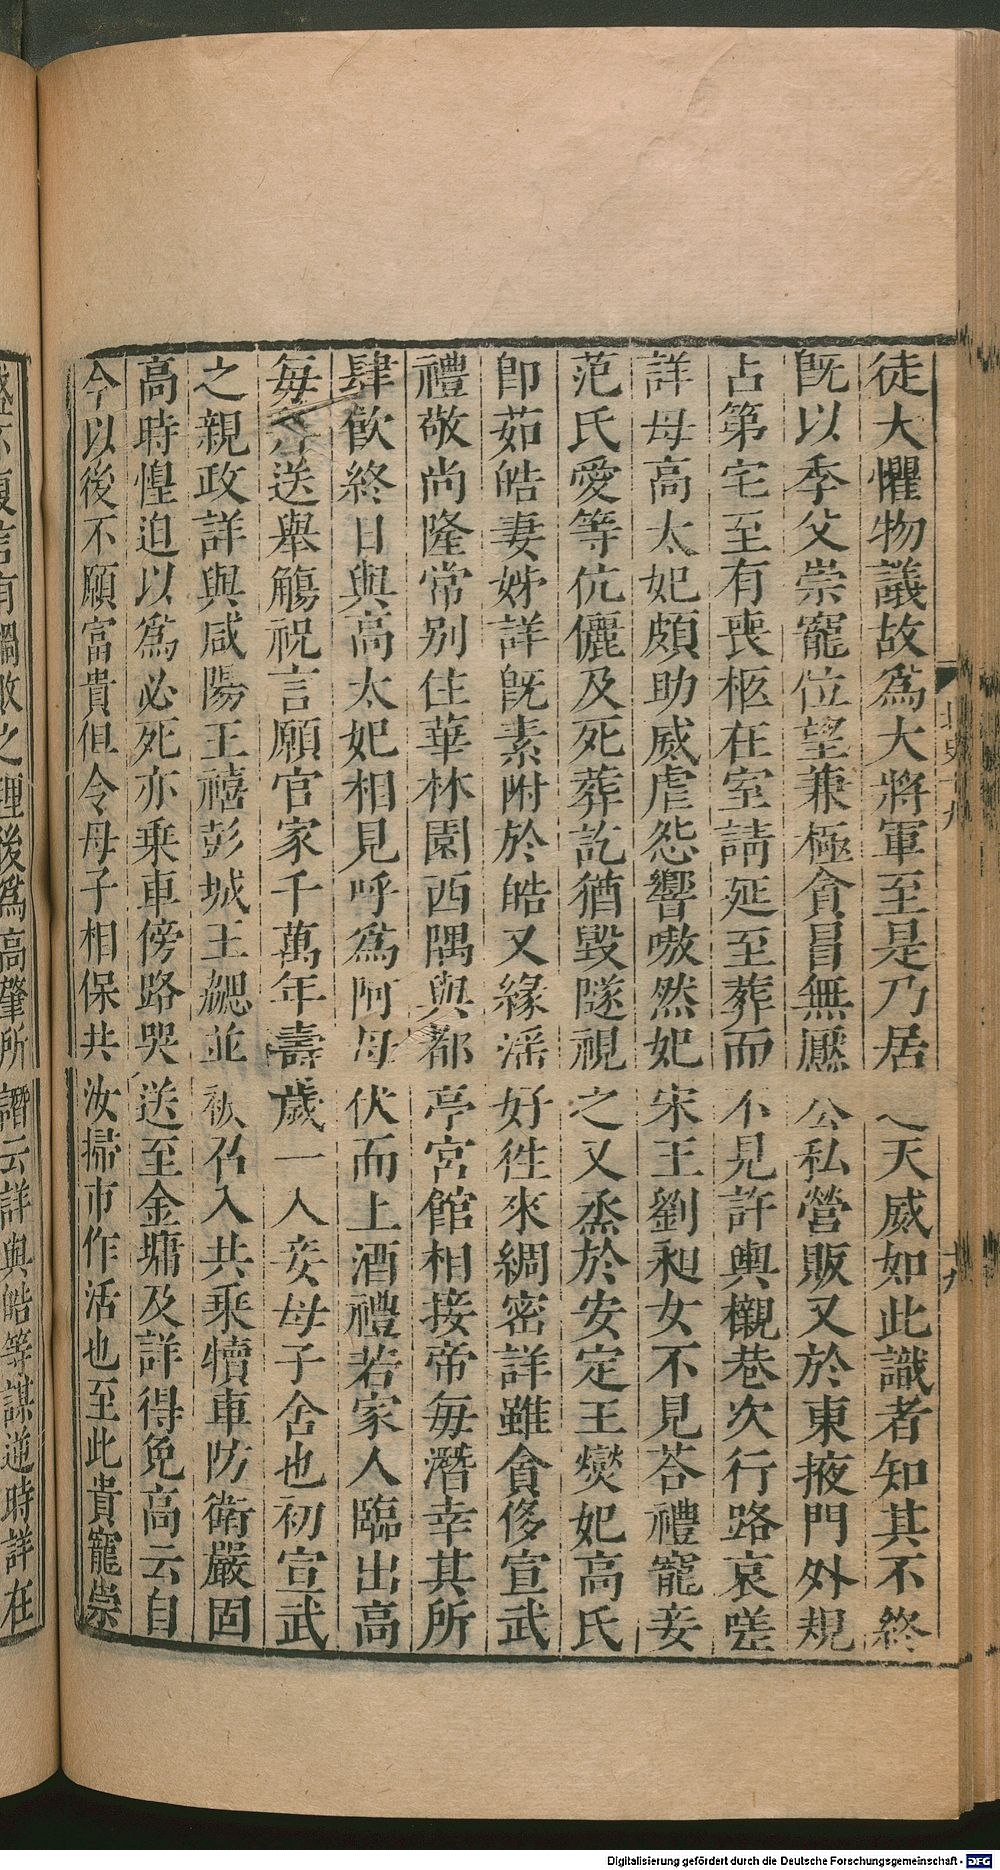 徒大懼物議故爲大將軍至是乃居之天威如此識者知其不終
旣以季父崇寵位望兼極貪冒無厭公私營販又於東掖門外規
占第宅至有喪柩在室請延至葬而不見許輿櫬巷次行路哀嗟
詳母高太妃頗助威虐怨響嗷然妃宋王劉昶女不見荅禮寵妾
范氏愛等伉儷及死葬訖猶毀隧視之又烝於安定王燮妃高氏
卽茹皓妻姊詳旣素附於皓又緣淫好徃來綢密詳雖貪侈宣武
禮敬尚隆常别住華林園西隅與都亭宮館相接帝毎潛幸其所
肆飮終日與高太妃相見呼爲阿母伏而上酒禮若家人臨出高
毎送舉觴祝言願官家千萬年壽歲一入妾母子舍也初宣武
之親政詳與咸陽王禧彭城王勰並被召入共乘犢車防衛嚴固
高時惶迫以爲必死亦乘車傍路哭送至金墉及詳得免高云自
今以後不願富貴但令母子相保共汝掃市作活也至此貴寵崇
盛不復言有禍敗之理後爲高肇所譖云詳與皓等謀逆時詳在
北史十九
十九
Digitalisierung gefördert durch die Deutsche Forschungsgemeinschaft - DFG